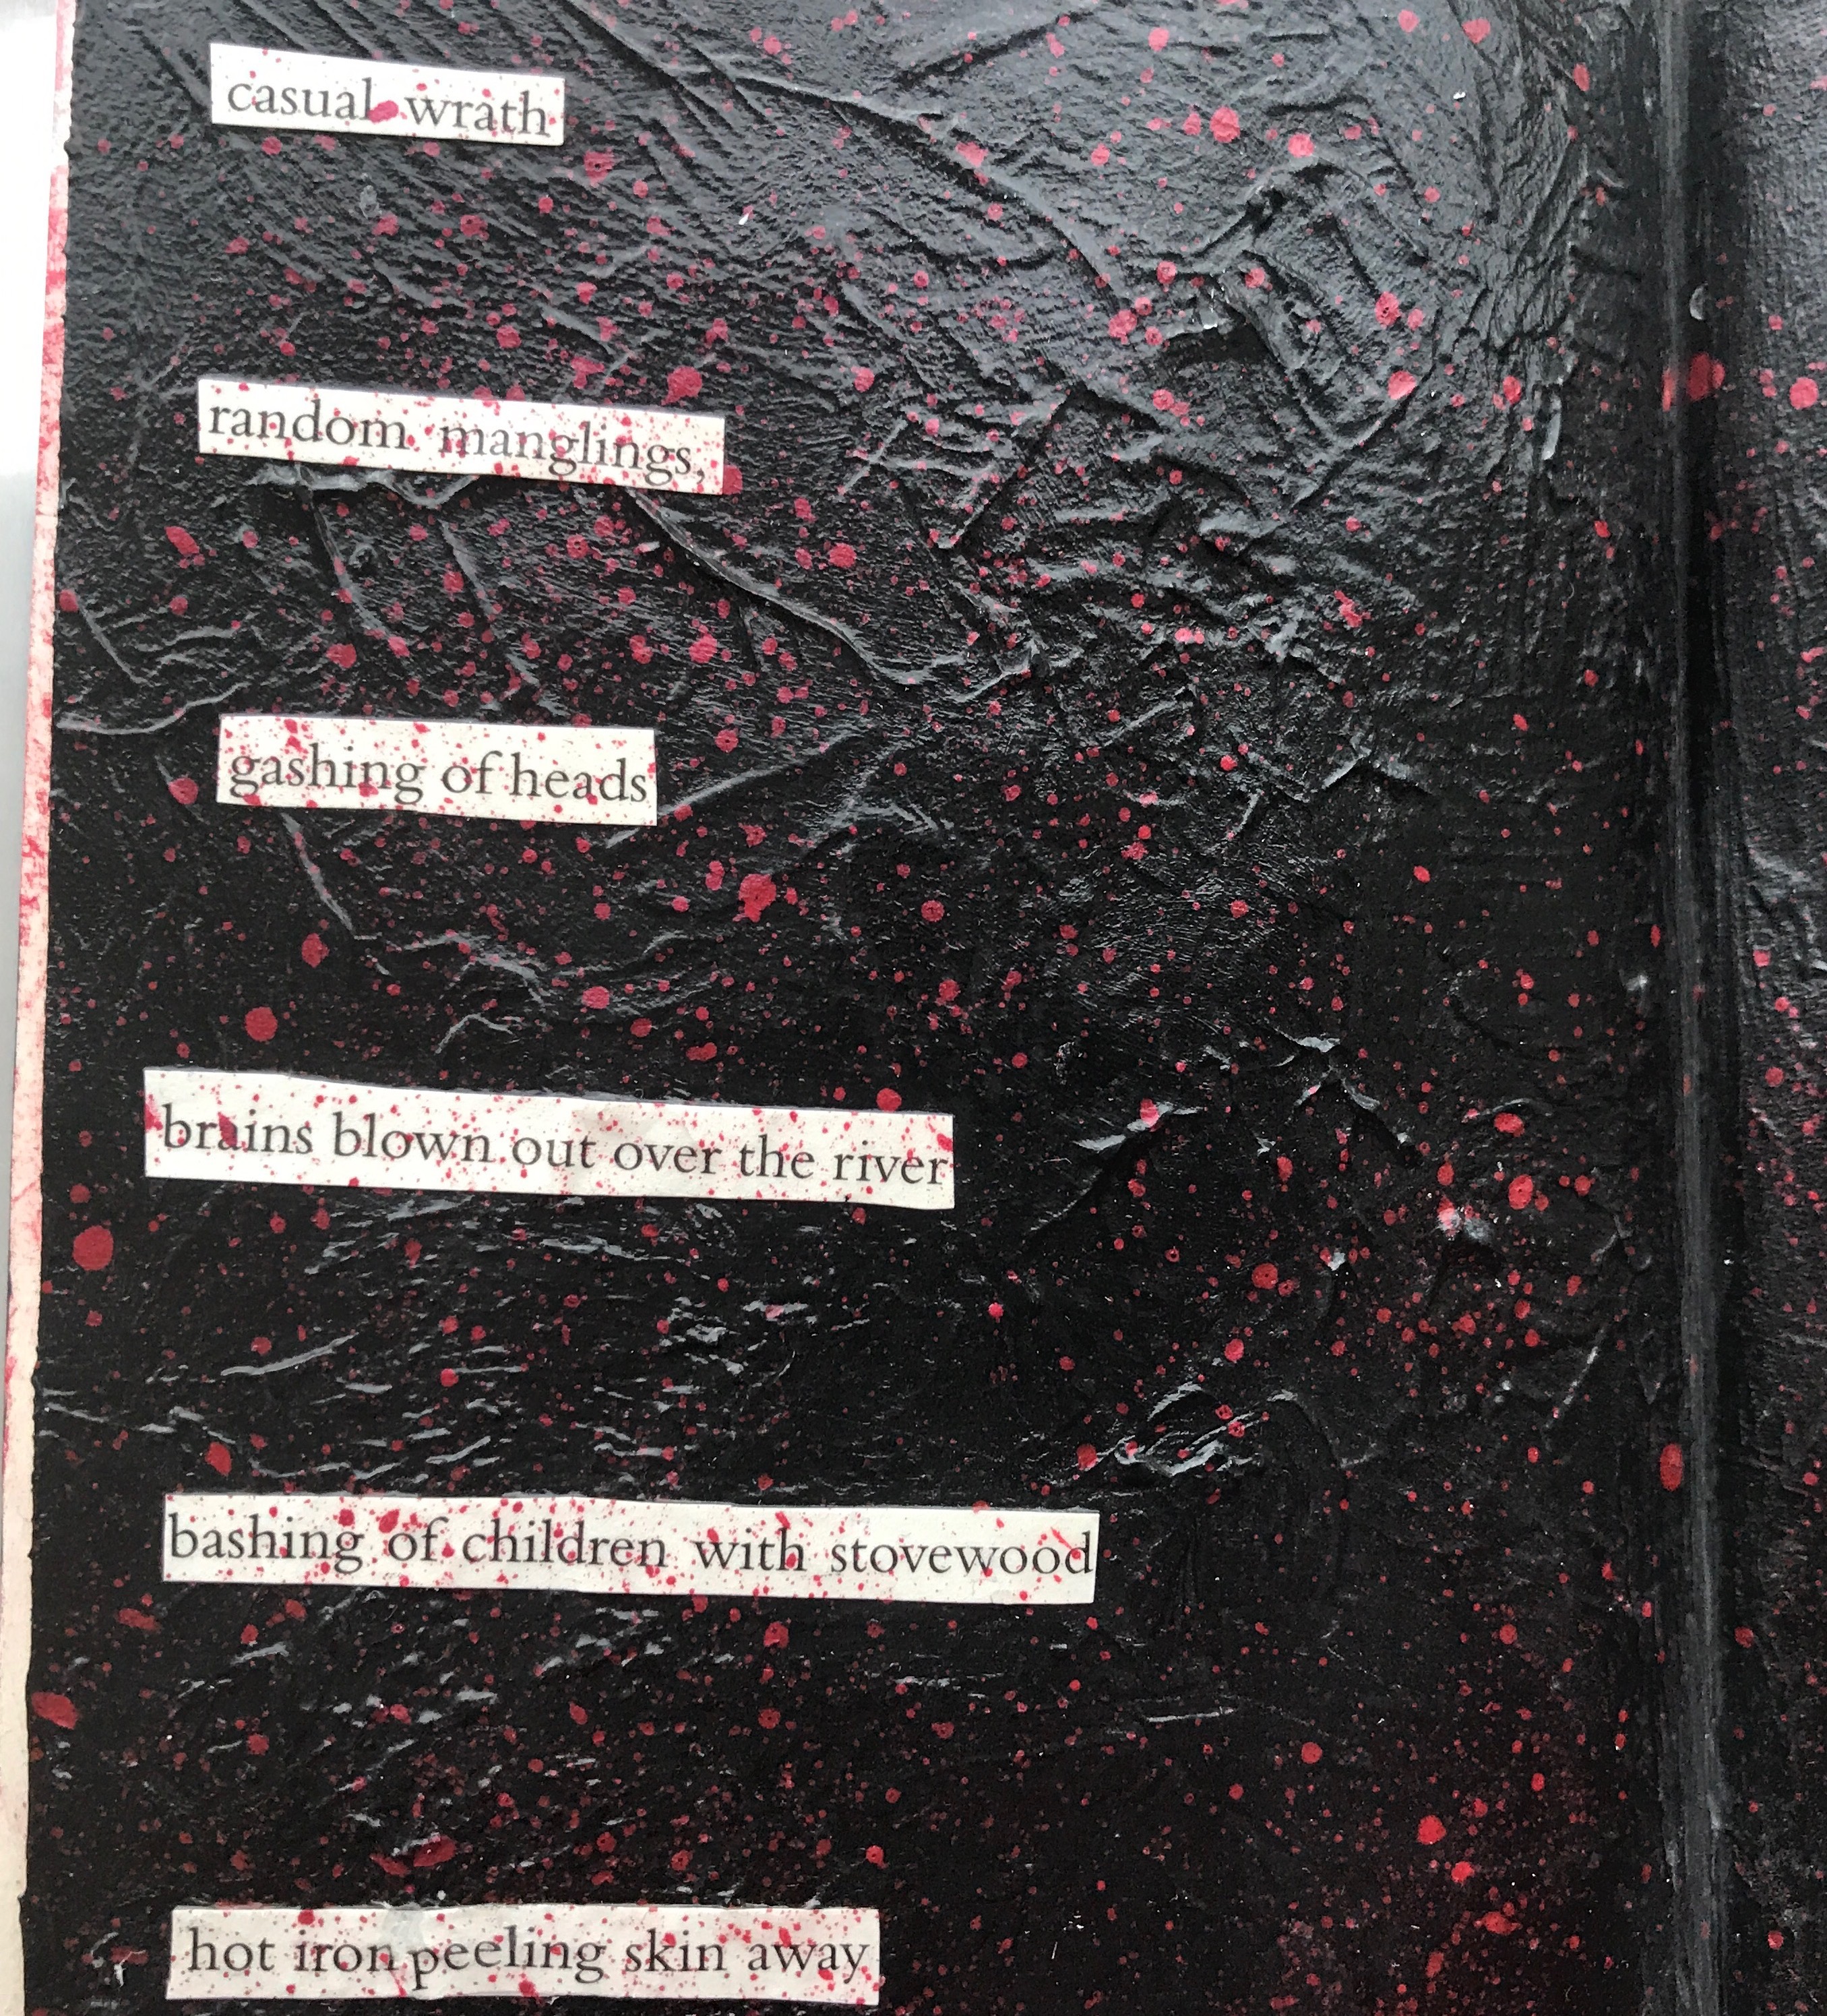 casual wrath
random manglings,
gashing of heads
brains blown out over the river
bashing of children with stovewood
hot iron peeling skin away